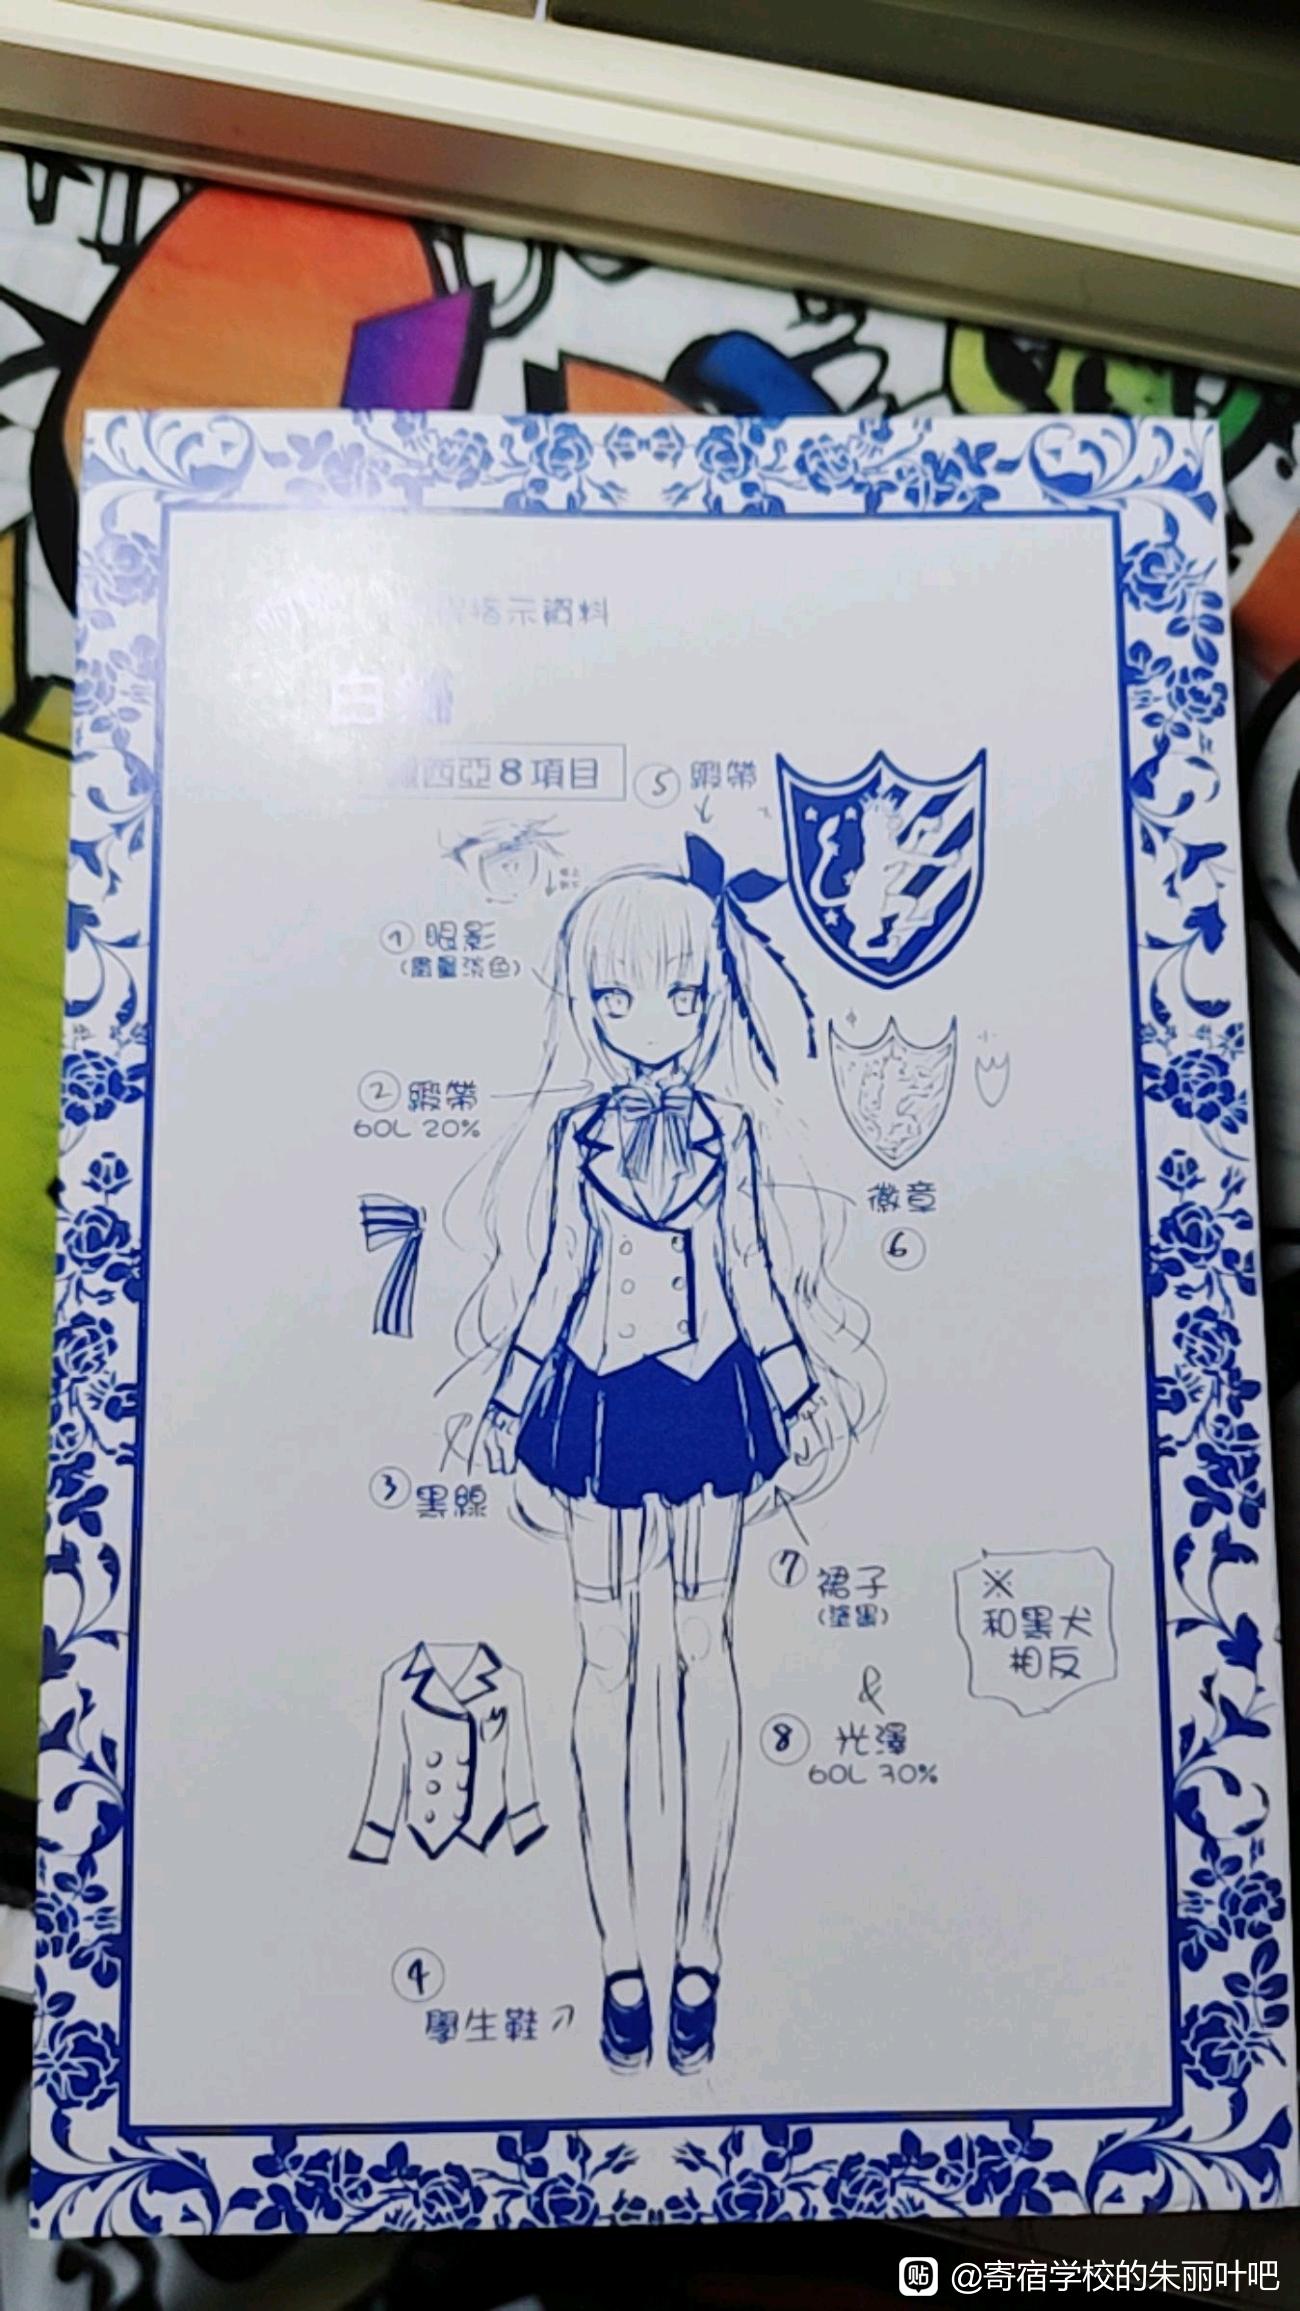 指示資料
白
西亞8項目
⑤ 緞帶
① 眼影
② 緞帶
60L 20%
徽章
⑥
③ 黑線
⑦ 裙子
(塗黑)
※
和黑犬
相反
&
⑧ 光澤
60L 30%
④
學生鞋
貼 @寄宿学校的朱丽叶吧